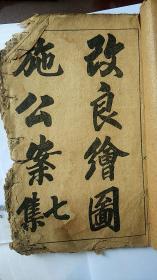 改良繪圖
施公案
七集